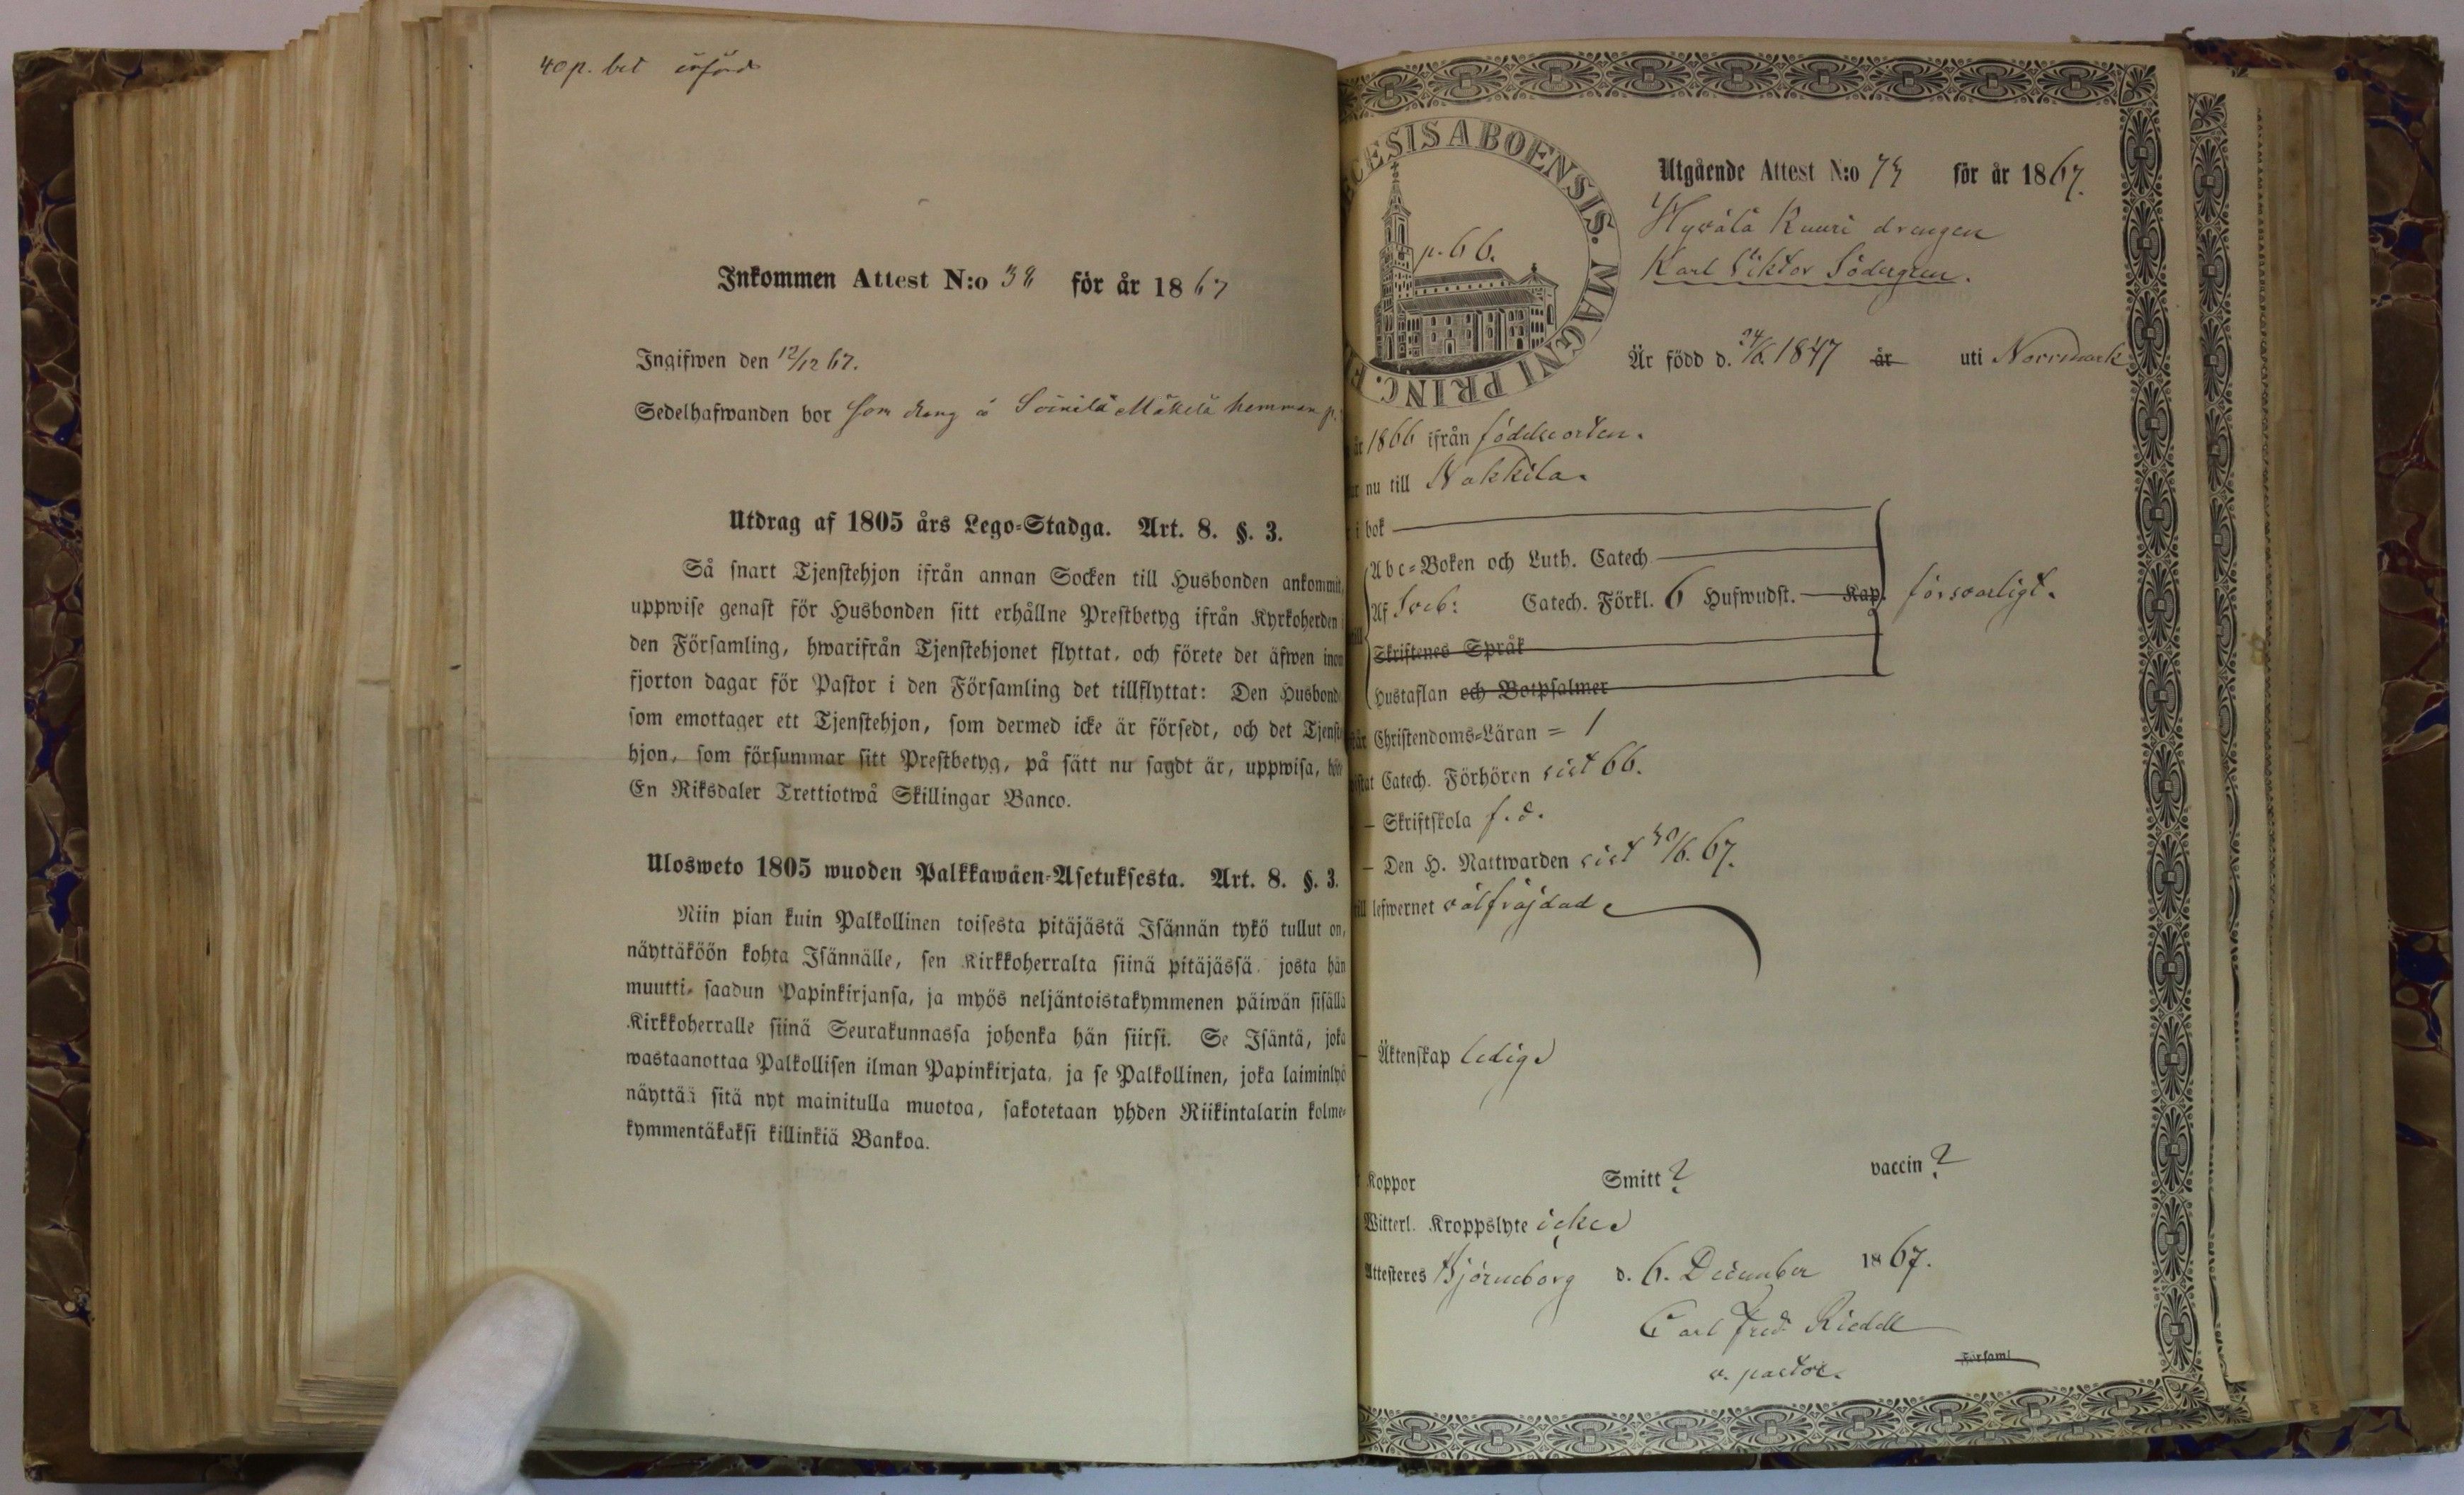 40 p. bet införd
Inkommen Attest N:o 38 för år 1867
Ingifwen den 12/12 67.
Sedelhafwanden bor som dräng å Soinila Mäkelä hemman p.
Utdrag af 1805 års Lego=Stadga. Art. 8. §. 3.
Så snart Tjenstehjon ifrån annan Socken till Husbonden ankommit,
uppwise genast för Husbonden sitt erhållne Prestbetyg ifrån Kyrkoherden i
den Församling, hwarifrån Tjenstehjonet flyttat, och förete det äfwen inom
fjorton dagar för Pastor i den Församling det tillflyttat: Den Husbonde
som emottager ett Tjenstehjon, som dermed icke är försedt, och det Tjenste
hjon, som försummar sitt Prestbetyg, på sätt nu sagdt är, uppwisa, böte
En Riksdaler Trettiotwå Skillingar Banco.
Ulosweto 1805 wuoden Palkkawäen=Asetuksesta. Art. 8. §. 3.
Niin pian kuin Palkollinen toisesta pitäjästä Isännän tykö tullut on,
näyttäköön kohta Isännälle, sen Kirkkoherralta siinä pitäjässä josta hän
muutti, saadun Papinkirjansa, ja myös neljäntoistakymmenen päiwän sisällä
Kirkkoherralle siinä Seurakunnassa johonka hän siirsi. Se Isäntä, joka
wastaanottaa Palkollisen ilman Papinkirjata, ja se Palkollinen, joka laiminlyö
näyttää sitä nyt mainitulla muotoa, sakotetaan yhden Riikintalarin kolme=
kymmentäkaksi killinkiä Bankoa.
CESIS ABOENSIS. MAGNI PRINC. F
p. 66.
Utgående Attest N:o 73 för år 1867.
Hyvälä Kuuri drengen
Karl Viktor Södergren.
Är född d. 24/6 1847 år uti Norrmark
år 1866 ifrån födelseorten.
nu till Nakkila.
i bok
Abc=Boken och Luth. Catech.
Af Sveb: Catech. Förkl. 6 Hufwudst. Kap. försvarligt.
Skriftenes Språk
Hustaflan och Botpsalmer
Christendoms=Läran = 1
Catech. Förhören sist 66.
– Skriftskola f. d.
– Den H. Nattwarden sist 30/6. 67.
till lefwernet välfräjdad
– Äktenskap ledig
Koppor Smitt ? vaccin ?
Witterl. Kroppslyte icke
Attesteres Björneborg d. 6. December 1867.
Carl Fred. Riddell
v. pastor.
Församl.